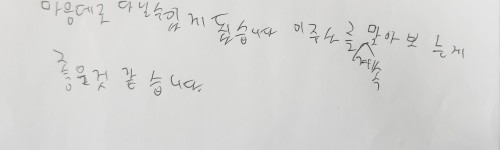 마음데로 다닐수 있게 됩습니다 이주노를 계속 말아보는게
좋을것 같습니다.